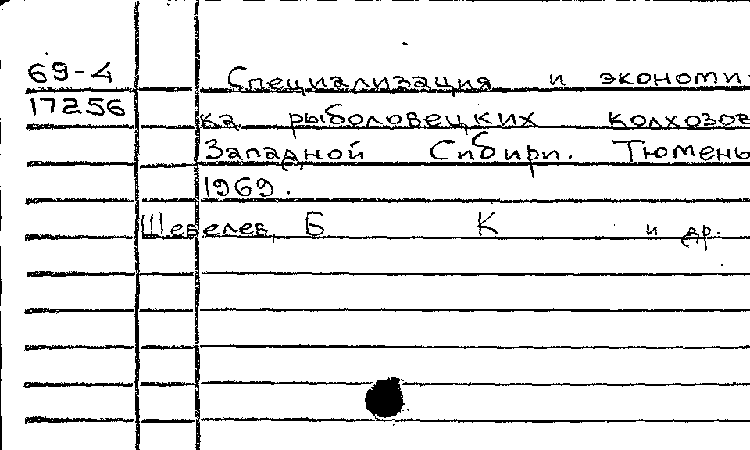 69-4 Специализация и экономи-
17256 ка рыболовецких колхозов
Западной Сибири. Тюмень
1969.
Шевелев, Б К и др.